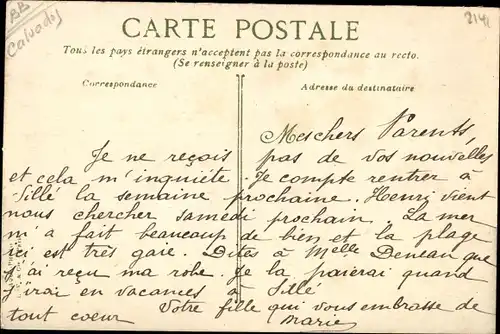 BB
Calvados
2141
CARTE POSTALE
Tous les pays étrangers n'acceptent pas la correspondance au recto.
(Se renseigner à la poste)
Correspondance
Adresse du destinataire
Mes chers Parents,
Je ne reçois pas de vos nouvelles
et cela m'inquiète. Je compte rentrer à
Sillé la semaine prochaine. Henri vient
nous chercher samedi prochain. La mer
m'a fait beaucoup de bien et la plage
ici est très gaie. Dites à Melle Deneau que
j'ai reçu ma robe. Je la paierai quand
j'irai en vacances à Sillé
Votre fille qui vous embrasse de
tout coeur Marie